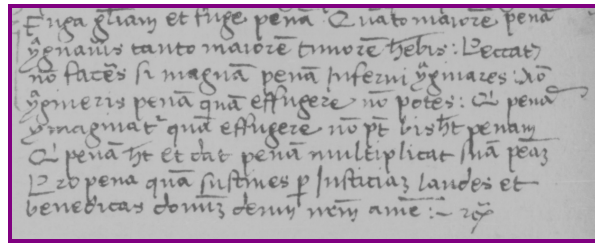 Fuga gl̃iam et fuge penã Quãto maiorẽ penã
ỹgnauis tanto maiorẽ timorẽ hẽbis: Peccatꝫ
nõ facẽs si magnã penã Inferni ỹgmares: Nõ
ỹgmeris penã quã effugere nõ potes: Qi penã
ymaginatr̃ quã effugere nõ pt̃ bis ht̃ penam
Qi penã ht̃ et dat penã multiplicat suã peãꝫ
Pro pena quã sustines ꝑ Justiciaꝫ laudes et
benedicas domĩꝫ deum nr̃m amẽ :~